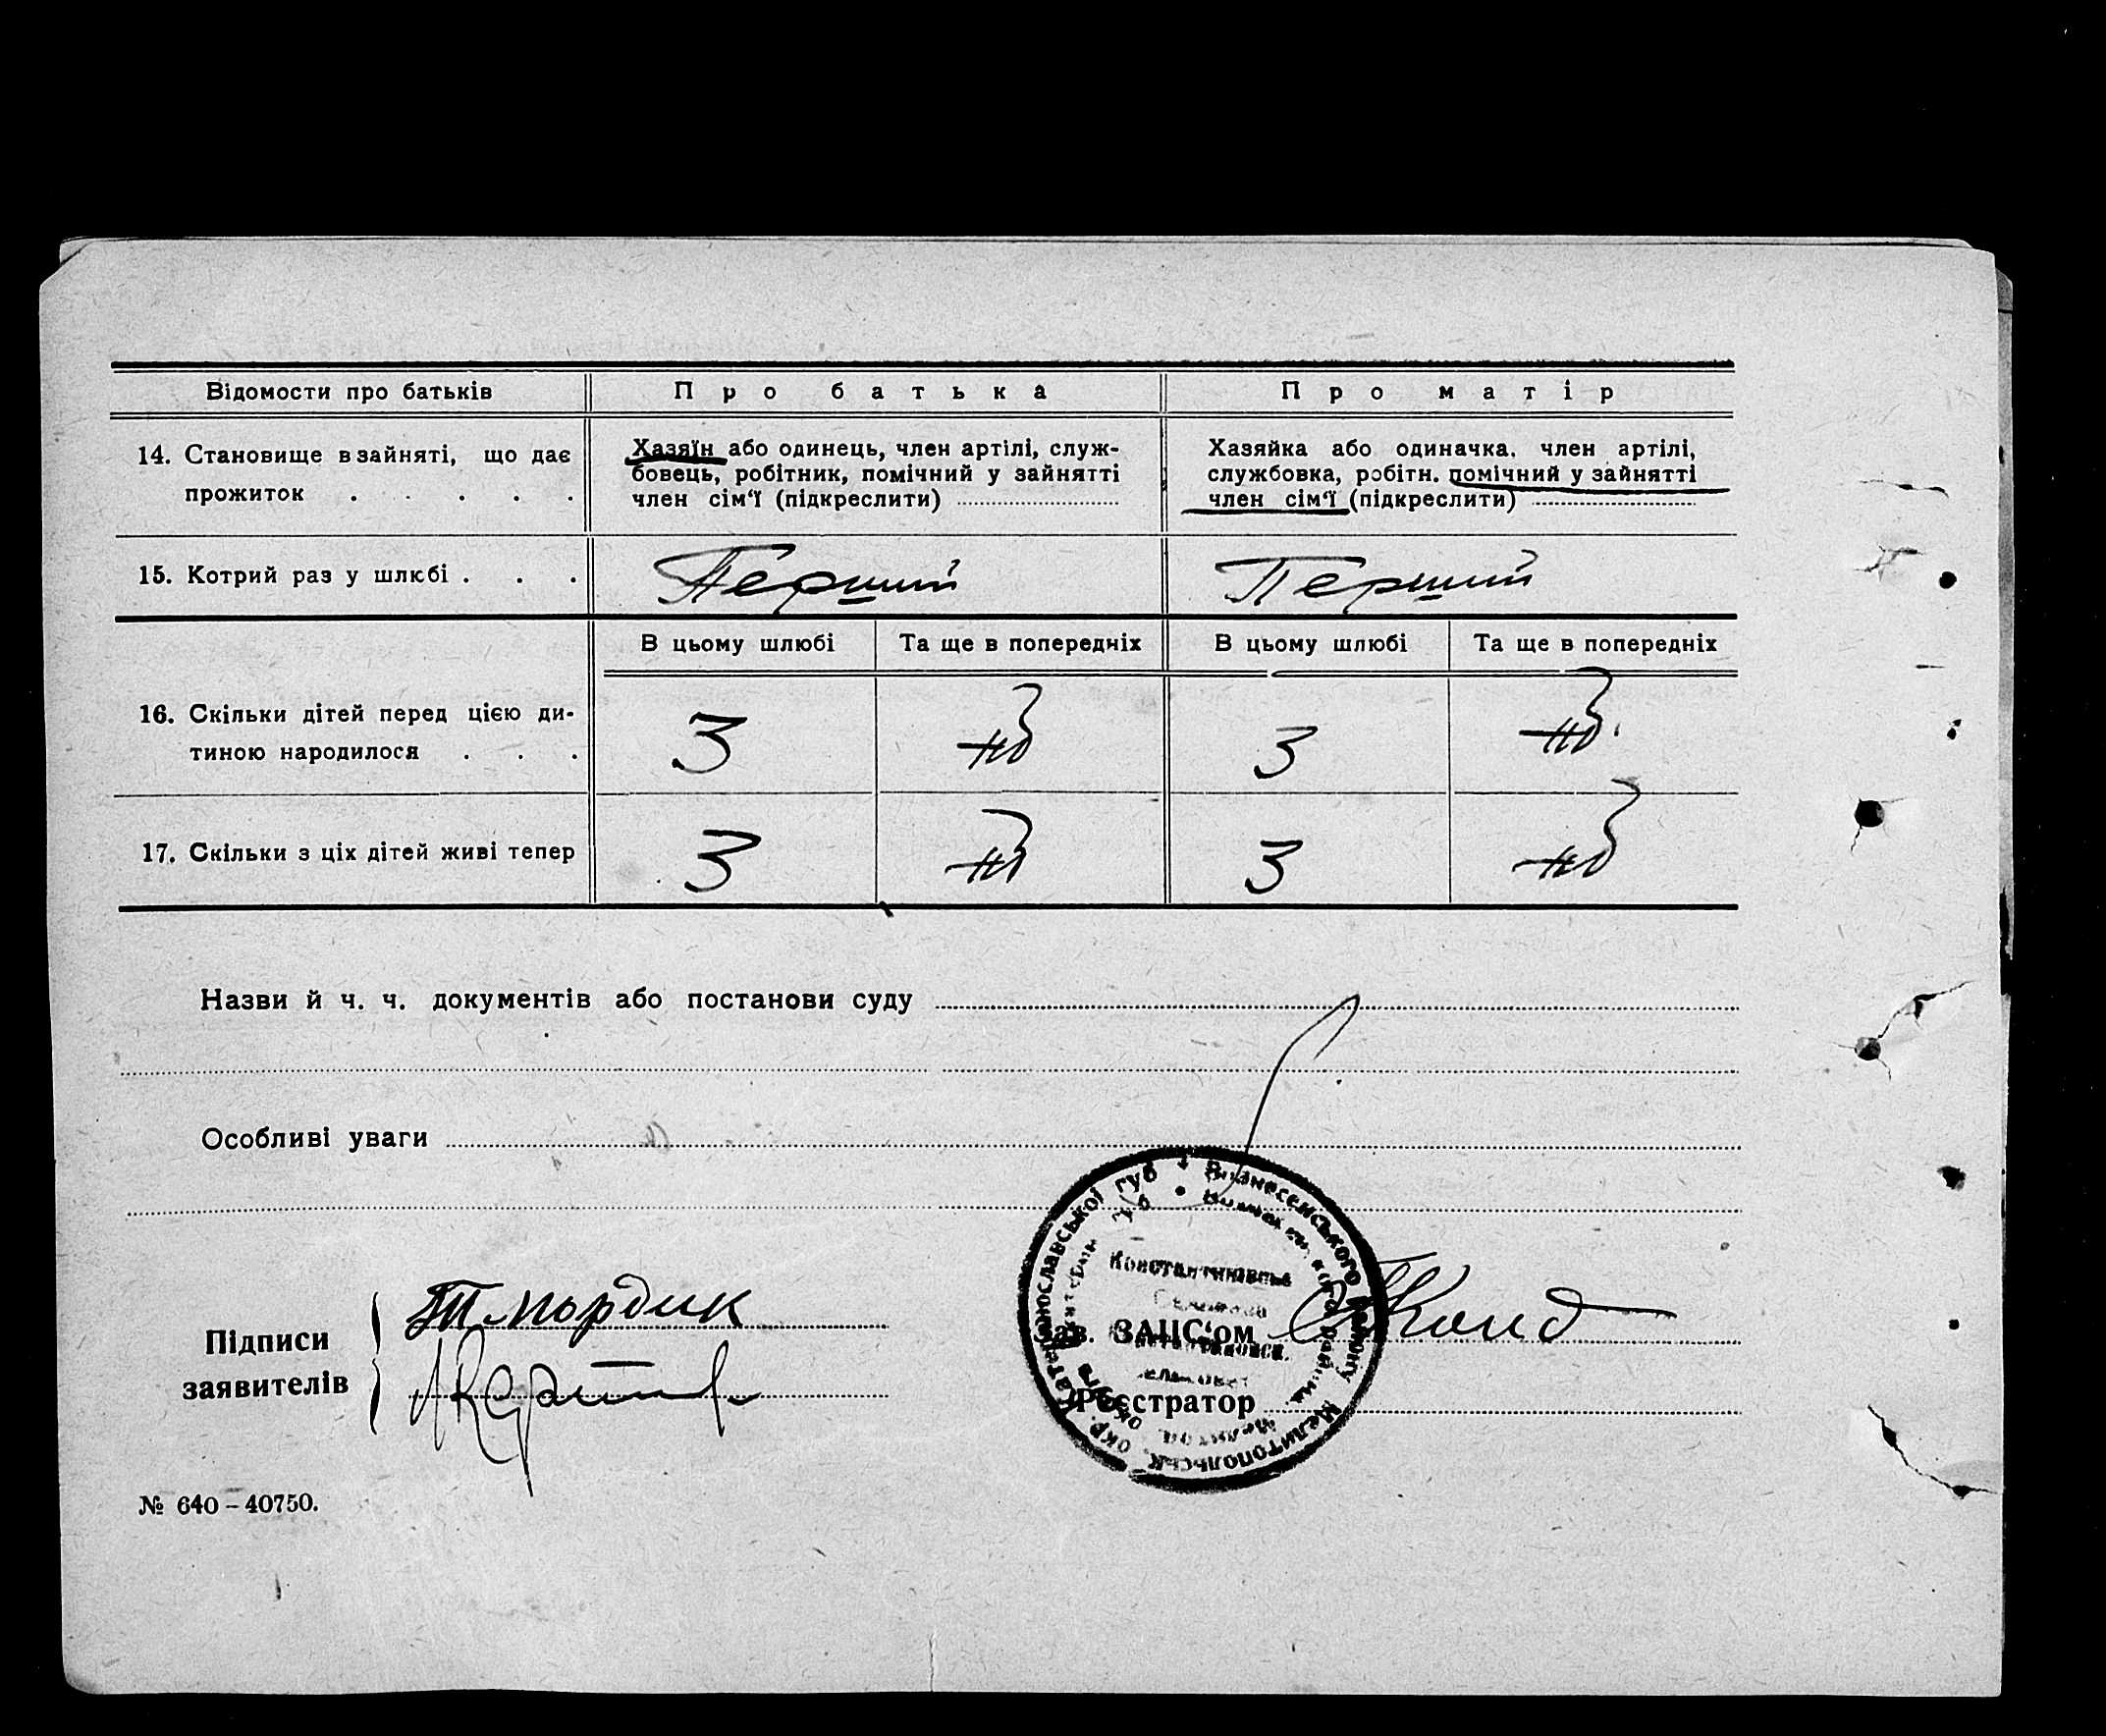 Відомости про батьків
Про батька
Про матір
14. Становище в зайняті, що дає
прожиток . . . . .
Хазяїн або одинець, член артілі, служ-
бовець, робітник, помічний у зайнятті
член сім‘ї (підкреслити)
Хазяйка або одиначка, член артілі,
службовка, робітн. помічний у зайнятті
член сім‘ї (підкреслити)
15. Котрий раз у шлюбі . . .
Перший
Перший
В цьому шлюбі
Та ще в попередніх
В цьому шлюбі
Та ще в попередніх
16. Скільки дітей перед цією ди-
тиною народилося . . .
3
3
17. Скільки з ціх дітей живі тепер
3
3
Назви й ч. ч. документів або постанови суду
Особливі уваги
Підписи
заявителів
Т Мордик
Зав. ЗАЦС‘ом
Реєстратор
Вознесенського району Мелитопольськ. окр. Катеринославської губ
Константинівська
№ 640 – 40750.